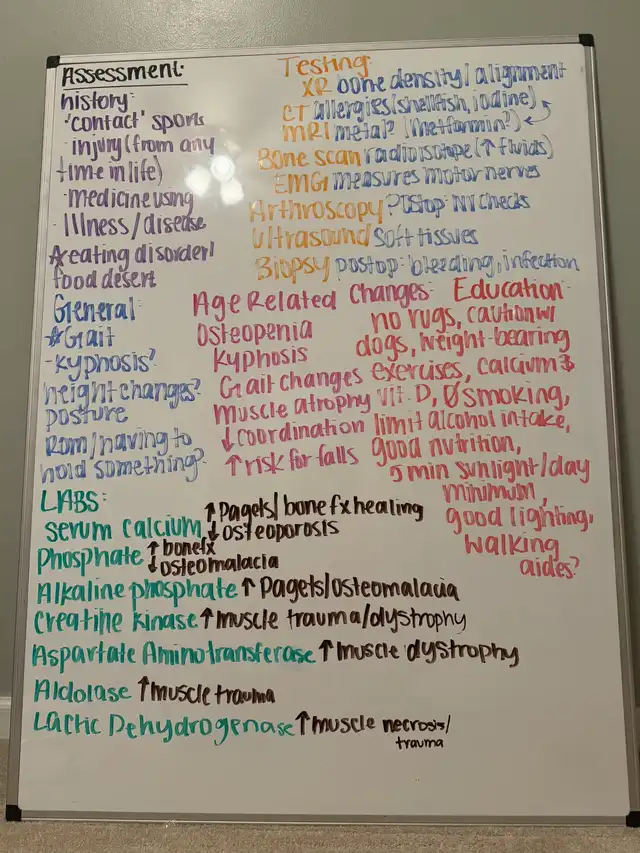 Assessment:
history:
'contact' sports
injury (from any
time in life)
- medicine using
- Illness / disease
eating disorder/
food desert
Testing:
XR bone density / alignment
CT allergies (shellfish, iodine)
MRI metal? (metformin?)
Bone scan radioisotope (↑ fluids)
EMG measures motor nerves
Arthroscopy Postop: NV checks
Ultrasound soft tissues
Biopsy postop: bleeding, infection
General:
*Gait
- Kyphosis?
height changes?
posture
ROM/having to
hold something?
Age Related Changes:
Osteopenia
Kyphosis
Gait changes
Muscle atrophy
↓ coordination
↑ risk for falls
Education:
no rugs, caution w/
dogs, weight-bearing
exercises, calcium &
vit. D, Ø smoking,
limit alcohol intake,
good nutrition,
5 min sunlight/day
minimum,
good lighting,
walking
aides?
LABS:
serum calcium ↑ Pagets/bone fx healing
↓ osteoporosis
Phosphate ↑ bone fx
↓ osteomalacia
Alkaline phosphate ↑ Pagets/osteomalacia
Creatine kinase ↑ muscle trauma/dystrophy
Aspartate Aminotransferase ↑ muscle dystrophy
Aldolase ↑ muscle trauma
Lactic Dehydrogenase ↑ muscle necrosis/
trauma